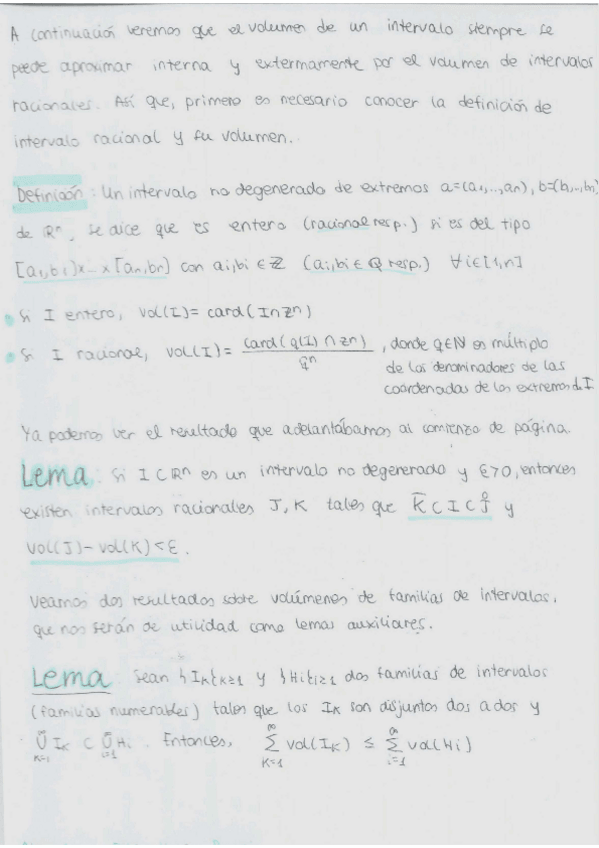 A continuación veremos que el volumen de un intervalo siempre se
puede aproximar interna y externamente por el volumen de intervalos
racionales. Así que, primero es necesario conocer la definición de
intervalo racional y su volumen.
Definición: Un intervalo no degenerado de extremos a=(a₁,...,aₙ), b=(b₁,..,bₙ)
de ℝⁿ, se dice que es entero (racional resp.) si es del tipo
[a₁,b₁)x...x[aₙ,bₙ) con aᵢ,bᵢ ∈ ℤ (aᵢ,bᵢ ∈ ℚ resp.) ∀i∈[1,n]
• Si I entero, vol(I) = card(I∩ℤⁿ)
• Si I racional, vol(I) = card(q(I) ∩ ℤⁿ) / qⁿ , donde q∈ℕ es múltiplo
de los denominadores de las
coordenadas de los extremos d I
Ya podemos ver el resultado que adelantábamos al comienzo de página.
Lema: Si I⊂ℝⁿ es un intervalo no degenerado y ε>0, entonces
existen intervalos racionales J, K tales que K̄ ⊂ I ⊂ J̊ y
vol(J) - vol(K) < ε.
Veamos dos resultados sobre volúmenes de familias de intervalos,
que nos serán de utilidad como lemas auxiliares.
Lema: Sean {Iₖ}ₖ≥₁ y {Hᵢ}ᵢ≥₁ dos familias de intervalos
(familias numerables) tales que los Iₖ son disjuntos dos a dos y
∞⋃ₖ₌₁ Iₖ ⊂ ∞⋃ᵢ₌₁ Hᵢ. Entonces, ∞∑ₖ₌₁ vol(Iₖ) ≤ ∞∑ᵢ₌₁ vol(Hᵢ)